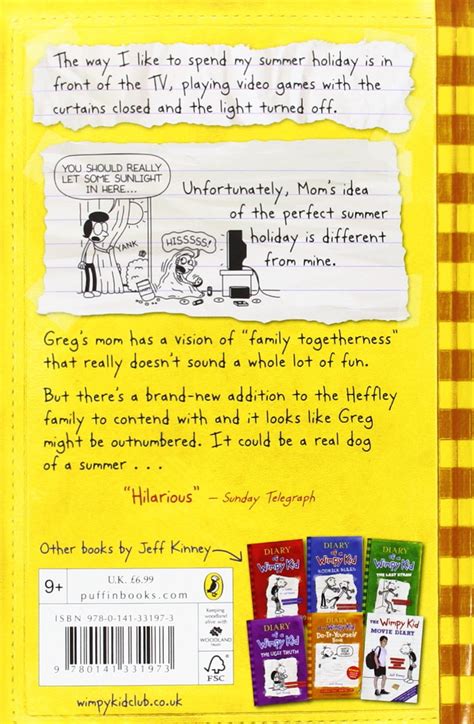 The way I like to spend my summer holiday is in
front of the TV, playing video games with the
curtains closed and the light turned off.
YOU SHOULD REALLY
LET SOME SUNLIGHT
IN HERE...
YANK
HISSSSS!
Unfortunately, Mom's idea
of the perfect summer
holiday is different
from mine.
Greg's mom has a vision of "family togetherness"
that really doesn't sound a whole lot of fun.
But there's a brand-new addition to the Heffley
family to contend with and it looks like Greg
might be outnumbered. It could be a real dog
of a summer . . .
"Hilarious" – Sunday Telegraph
Other books by Jeff Kinney
DIARY
of a
Wimpy Kid
DIARY
of a
Wimpy Kid
RODRICK RULES
DIARY
of a
Wimpy Kid
THE LAST STRAW
DIARY
of a
Wimpy Kid
THE UGLY TRUTH
DIARY
of a Wimpy Kid
Do-It-Yourself
Book
THE Wimpy Kid
MOVIE DIARY
9+
U.K. £6.99
puffinbooks.com
ISBN 978-0-141-33197-3
9 780141 331973
Keeping
woodland
alive with
WOODLAND
TRUST
FSC
wimpykidclub.co.uk